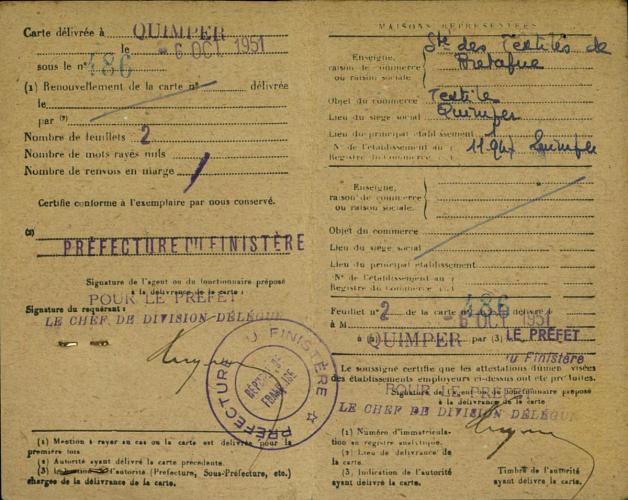 Carte délivrée à QUIMPER
le - 6 OCT 1951
sous le n° 486
(1) Renouvellement de la carte n° délivrée
le
par (2)
Nombre de feuillets 2
Nombre de mots rayés nuls
Nombre de renvois en marge
Certifie conforme à l'exemplaire par nous conservé.
(3)
PRÉFECTURE DU FINISTÈRE
Signature de l'agent ou du fonctionnaire préposé
à la délivrance de la carte :
POUR LE PREFET
Signature du requérant :
LE CHEF DE DIVISION DÉLÉGUÉ
PRÉFECTURE DU FINISTÈRE
RÉPUBLIQUE FRANÇAISE
(1) Mention à rayer au cas ou la carte est délivrée pour la
première fois.
(2) Autorité ayant délivré la carte précédente.
(3) l'autorité (Prefecture, Sous-Préfecture, etc.)
chargée de la délivrance de la carte.
MAISONS REPRÉSENTÉES
Enseigne,
raison de commerce
ou raison sociale
Sté des Textiles de
Bretagne
Objet du commerce Textile
Lieu du siège social Quimper
Lieu du principal établissement
N° de l'établissement au
Registre du commerce
Quimper
Enseigne,
raison de commerce
ou raison sociale
Objet du commerce
Lieu du siège social
Lieu du principal établissement
N° de l'établissement au
Registre du commerce
Feuillet n° 2 de la carte n° 486 délivrée
à M 6 OCT 1951
à (2) QUIMPER par (3) LE PRÉFET
du Finistère
Le soussigné certifie que les attestations dûment visées
des établissements employeurs ci-dessus ont été produites.
Signature de l'agent ou du fonctionnaire préposé
à la délivrance de la carte
POUR LE PREFET
LE CHEF DE DIVISION DÉLÉGUÉ
(1) Numéro d'immatricula-
tion au registre analytique.
(2) Lieu de délivrance de
la carte.
(3) Indication de l'autorité
ayant délivré la carte.
Timbre de l'autorité
ayant délivré la carte.